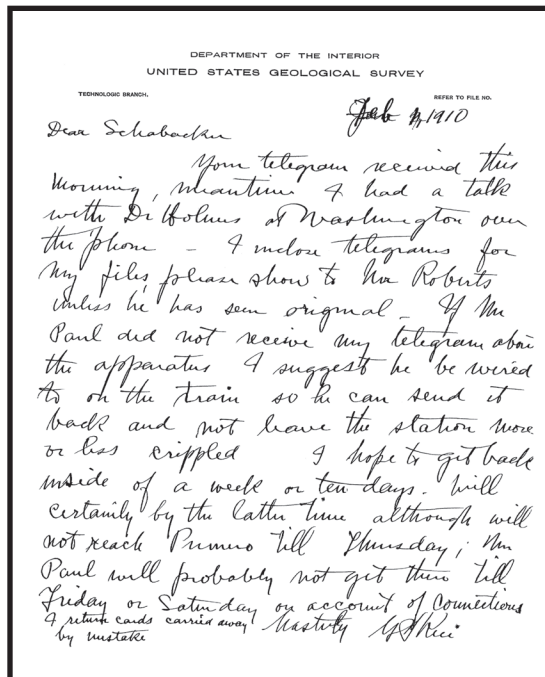 DEPARTMENT OF THE INTERIOR
UNITED STATES GEOLOGICAL SURVEY
TECHNOLOGIC BRANCH.
REFER TO FILE NO.
Feb 1910
Dear Schabacker
Your telegram received this
morning, meantime I had a talk
with Dr Holmes at Washington over
the phone – I inclose telegrams for
my files, please show to Mr Roberts
unless he has seen original – If Mr
Paul did not receive my telegram about
the apparatus I suggest he be wired
to on the train so he can send it
back and not leave the station more
or less crippled I hope to get back
inside of a week or ten days. Will
certainly by the latter time although will
not reach Primero till Thursday; Mr
Paul will probably not get there till
Friday or Saturday on account of connections
I return cards carried away Hastily G S Rice
by mistake